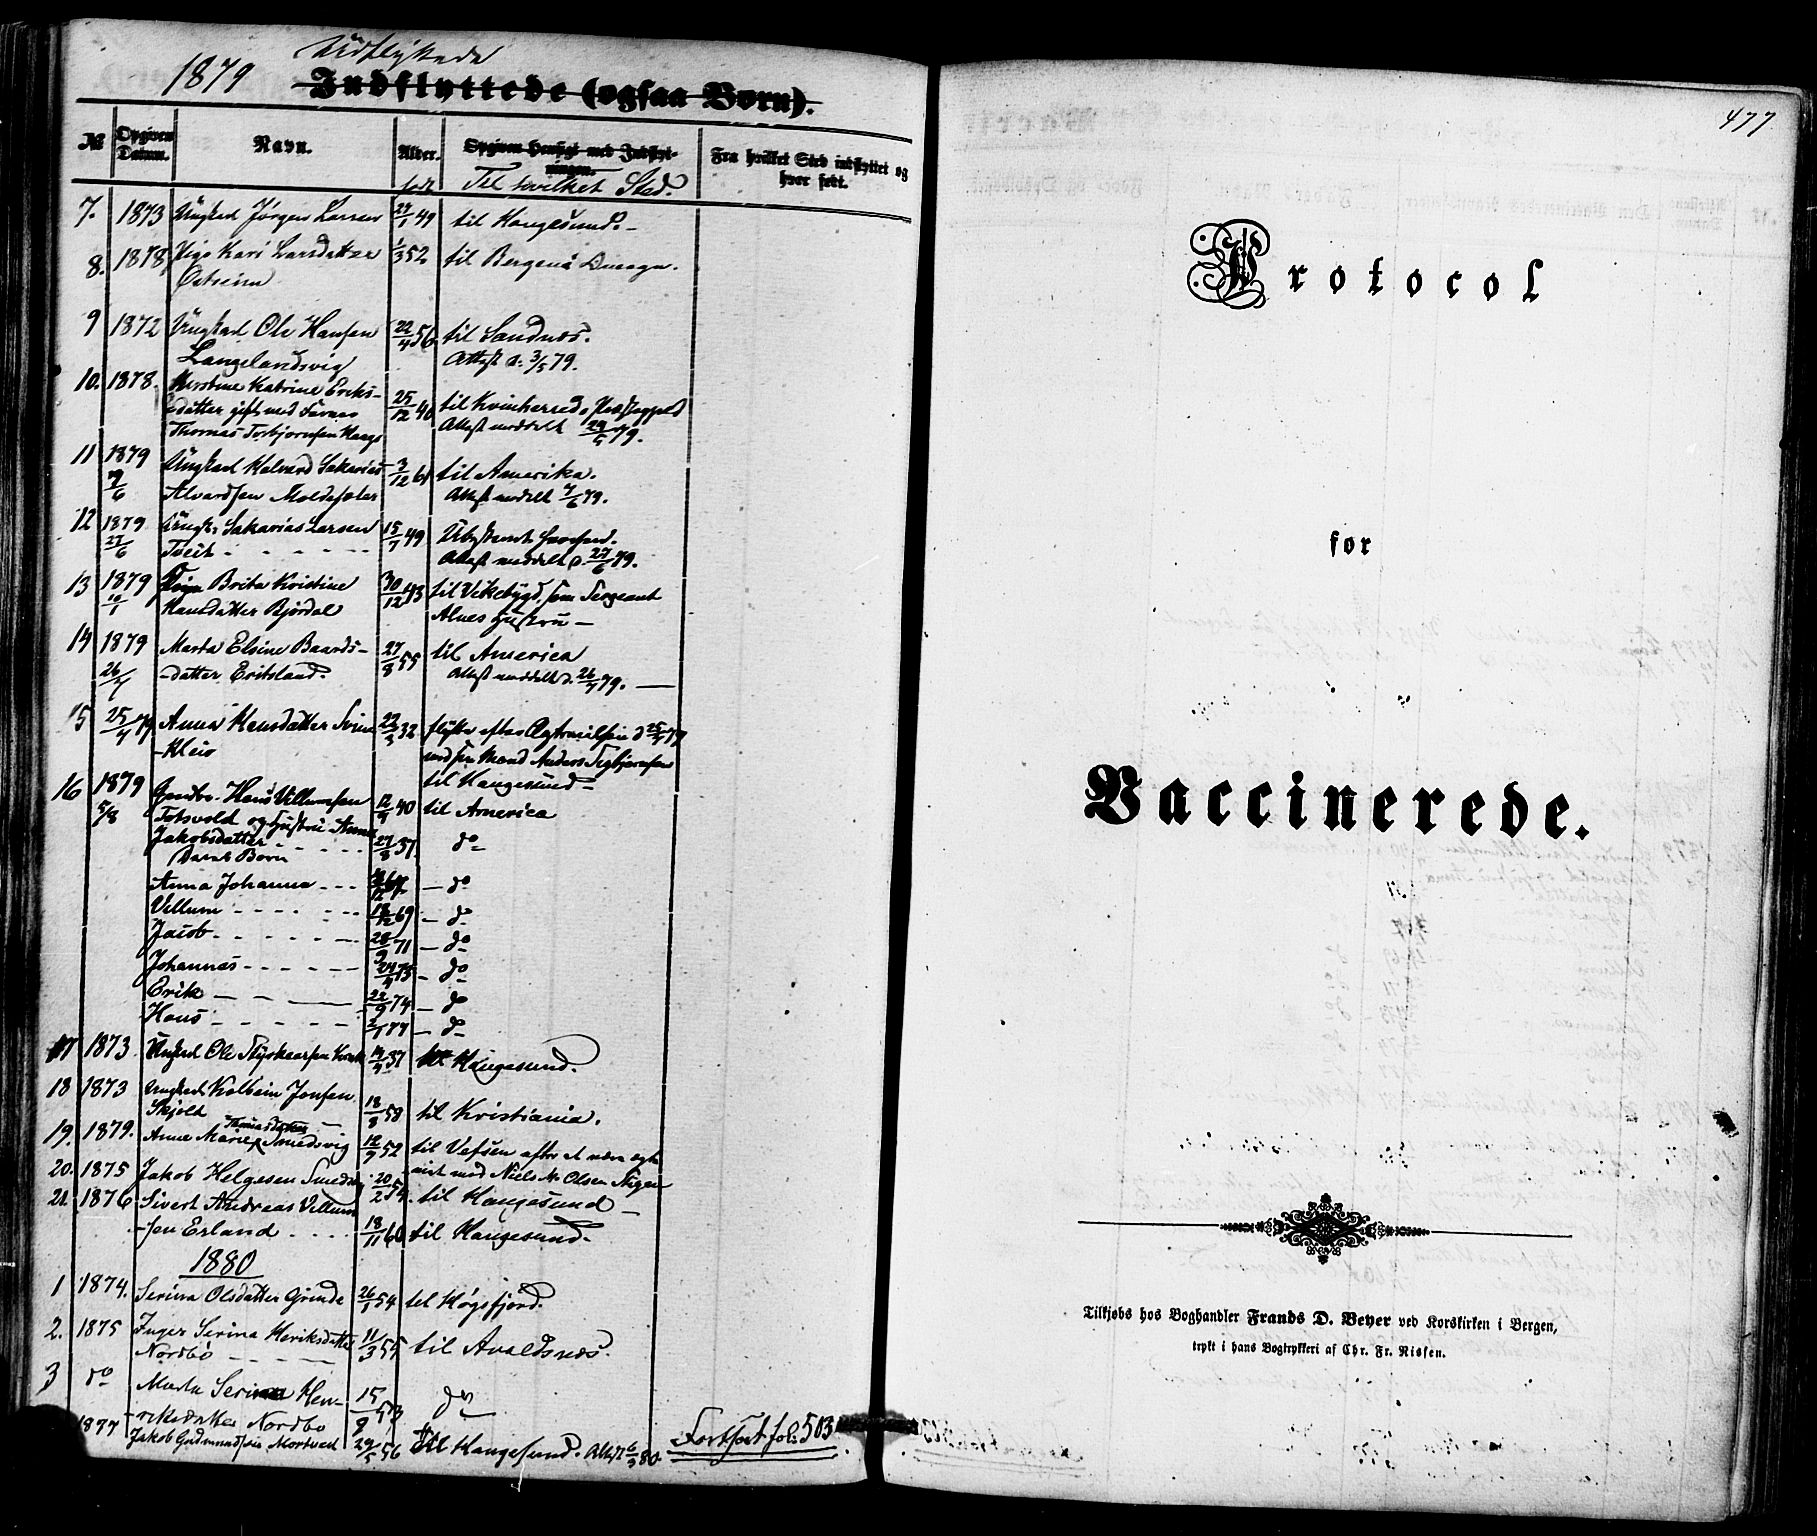 1879 Udflyttede
Indflyttede (ogsaa Børn).
№ Opgiven Datum. Navn. Alder. Opgiven Hensigt med Indflytningen. Fra hvilket Sted indflyttet og hvor født.
født Til hvilket Sted.
7. 1873 Ungkarl Jørgen Larsen 27/1 49 til Haugesund.
8. 1878 Pige Kari Larsdatter 1/3 52 til Bergens
9 1872 Ungkarl Ole Hansen 22/4 56 til Sandnes.
Langelandsvig Attest d. 3/5 79.
10. 1878. Katrine Eriks- 25/12 40 til Kvinherreds Præstegjeld
datter gift med
Thomas Torbjørnsen Haage Attest meddelt 29/5 79.
11 1879 Ungkarl Halvard Sakarias 3/12 61 til Amerika.
9/6 Alvardsen Moldesæter Attest meddelt 9/6 79.
12 1879 Ungk. Sakarias Larsen 15/7 49 Ubestemt hvorhen.
27/6 Tveit Attest meddelt d. 27/6 79.
13 1879 Brita Kristine 30/12 43 til Vikebygd, som Sergeant
10/1 Hansdatter Bjordal Alnes Hustru
14 1879 Marta Elsine Baards- 27/8 55 til America
26/7 -datter Eritsland. Attest meddelt d. 26/7 79.
15 25/4 79 Anna Hansdatter Svine 22/3 32 flytte efter 25/4 79
-kleiv med sin Mand Anders
til Haugesund
16 1879 Gmbr. Hans Villumsen 12/4 40 til America
5/8 og Hustru Anna
Jakobsdatter 27/8 37. do
Deres Børn
Anna Johanna 67 do
Villum 18/12 69 do
Jacob 28/9 71 do
Johannes 24/4 73 do
Erik 22/9 74 do
Hans 2/1 77 do
17 1873. Ungkarl Ole 14/4 37 til Haugesund.
18 1873 Ungkarl Kolbein Jonsen
Skjold 18/8 58 til Kristiania.
19. 1879. Anne Marie Smedsvig 12/7 52 til Vefsen efter at være egte
viet med Niels M. Olsen
20. 1875 Jakob Helgesen Smedsvig 20/2 54. til Haugesund
21. 1876 Sivert Andreas Villum
-sen Erland 18/11 60 til Haugesund.
1880
1 1874. Serina Olsdatter Grinde 26/1 54 til Høgsfjord.
2. 1875 Inger Serina Henriksdatter 11/3 55 til Avaldsnes.
Nordbø
3 do Marta Serina Hen- 15/9 53 do
-riksdatter Nordbø
1877 Jakob Gudmundsen Mortved 29/5 56 til Haugesund. Attest 6/3 80. Fortsat fol: 503
477
Protocol
for
Vaccinerede.
Tilkjøbs hos Boghandler Frands D. Beyer ved Korskirken i Bergen,
trykt i hans Bogtrykkeri af Chr. Fr. Nissen.